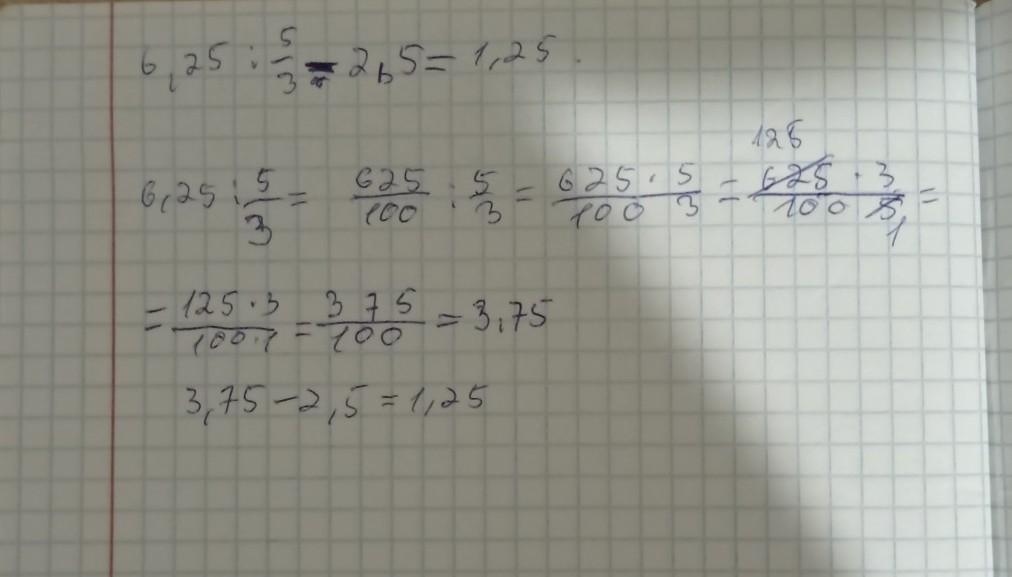 6,25 : 5/3 - 2,5 = 1,25.
6,25 : 5/3 = 625/100 : 5/3 = 625·5/100 3 = 625·3/100 5 = 125 1
= 125·3/100·1 = 375/100 = 3,75
3,75 - 2,5 = 1,25